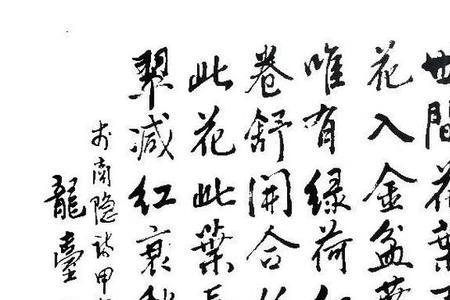 世間花葉
花入金盆葉
唯有緑荷
卷舒開合
此花此葉長
翠減红衰
李商隐詩甲
龍臺